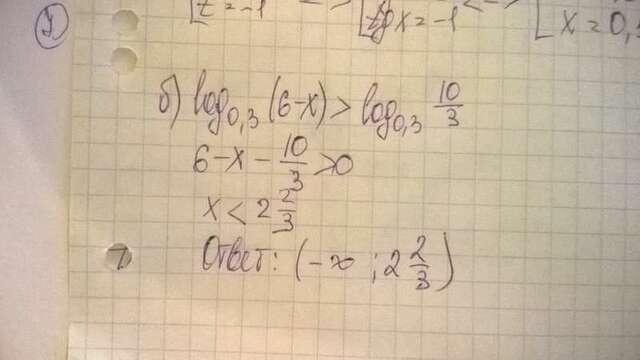 t = -1
tg x = -1
x = 0,
б) log₀,₃ (6-x) > log₀,₃ 10/3
6 - x - 10/3 > 0
x < 2 2/3
Ответ: (-∞ ; 2 2/3)